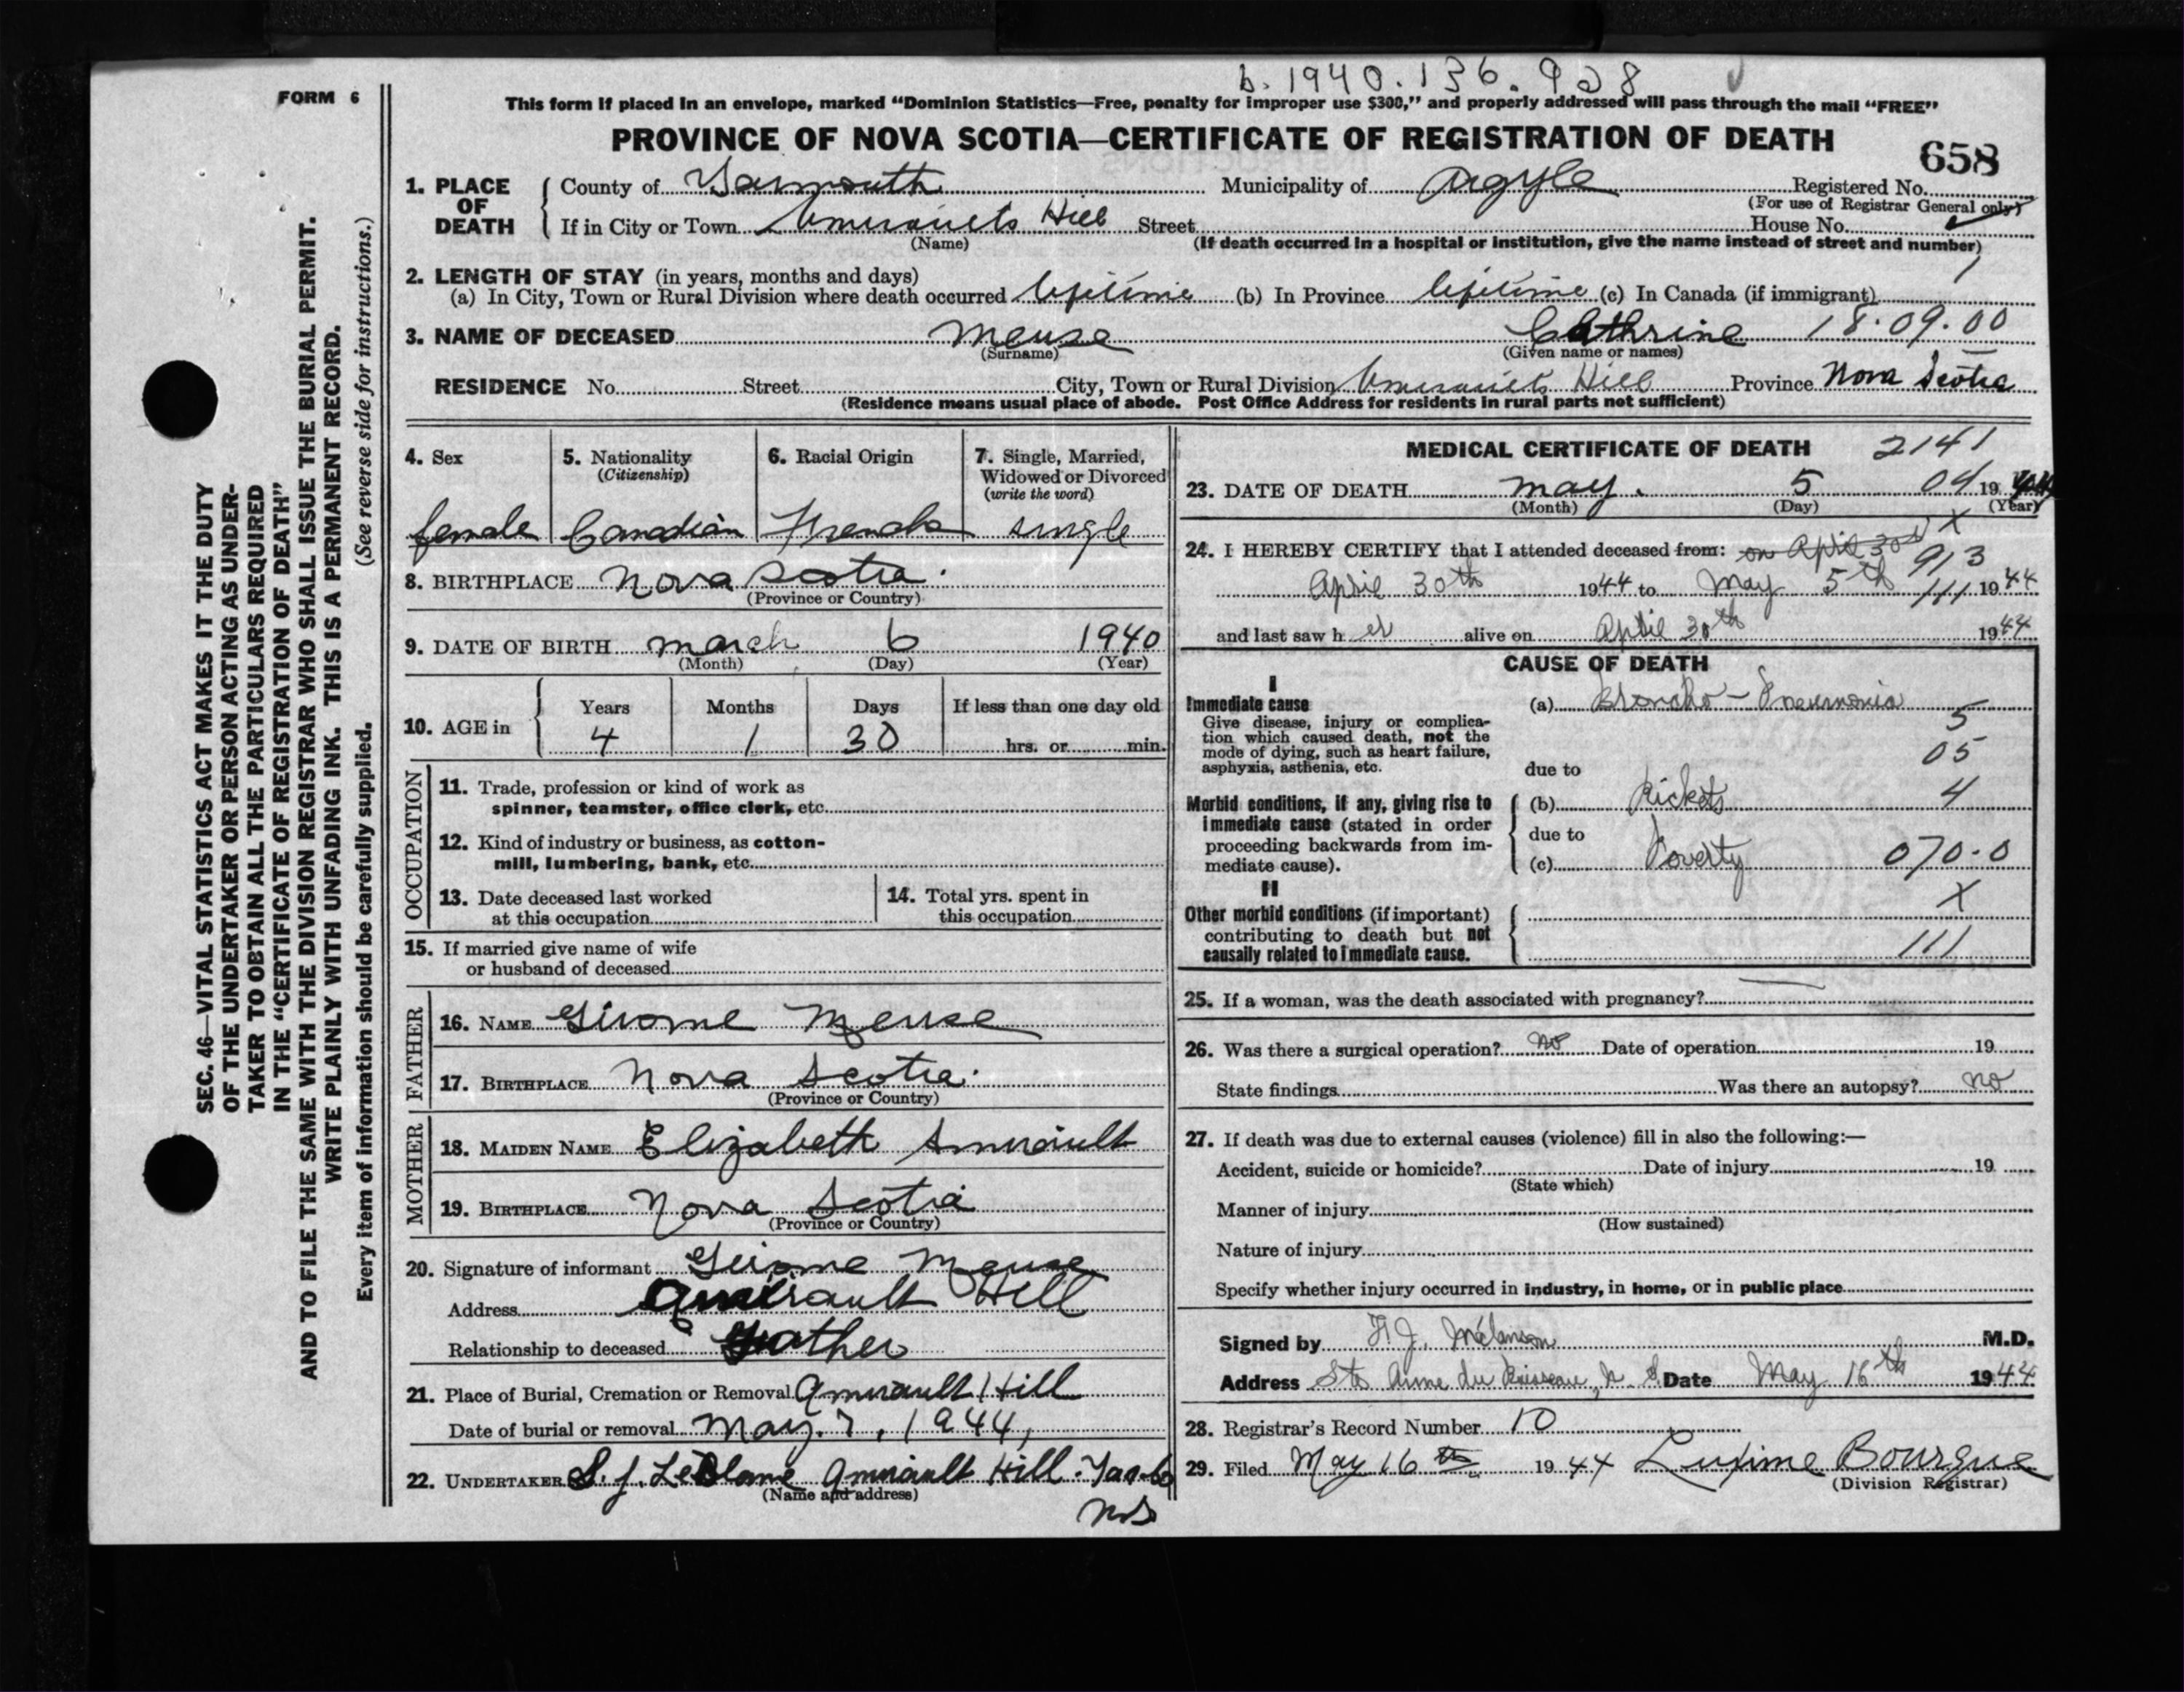 b. 1940. 136. 928
FORM 6
This form if placed in an envelope, marked “Dominion Statistics—Free, penalty for improper use $300,” and properly addressed will pass through the mail “FREE”
PROVINCE OF NOVA SCOTIA—CERTIFICATE OF REGISTRATION OF DEATH
658
1. PLACE OF DEATH { County of Yarmouth Municipality of Argyle Registered No.
(For use of Registrar General only)
If in City or Town Amiraults Hill Street House No.
(Name) (If death occurred in a hospital or institution, give the name instead of street and number)
2. LENGTH OF STAY (in years, months and days)
(a) In City, Town or Rural Division where death occurred lifetime (b) In Province lifetime (c) In Canada (if immigrant)
3. NAME OF DECEASED Meuse Cathrine 18.09.00
(Surname) (Given name or names)
RESIDENCE No. Street City, Town or Rural Division Amiraults Hill Province Nova Scotia
(Residence means usual place of abode. Post Office Address for residents in rural parts not sufficient)
4. Sex female
5. Nationality (Citizenship) Canadian
6. Racial Origin French
7. Single, Married, Widowed or Divorced (write the word) single
8. BIRTHPLACE Nova Scotia
(Province or Country)
9. DATE OF BIRTH March 6 1940
(Month) (Day) (Year)
10. AGE in { Years Months Days If less than one day old
4 1 30 hrs. or min.
OCCUPATION
11. Trade, profession or kind of work as
spinner, teamster, office clerk, etc.
12. Kind of industry or business, as cotton-
mill, lumbering, bank, etc.
13. Date deceased last worked
at this occupation
14. Total yrs. spent in
this occupation
15. If married give name of wife
or husband of deceased
FATHER
16. NAME Girome Meuse
17. BIRTHPLACE Nova Scotia
(Province or Country)
MOTHER
18. MAIDEN NAME Elizabeth Amirault
19. BIRTHPLACE Nova Scotia
(Province or Country)
20. Signature of informant Girome Meuse
Address Amirault Hill
Relationship to deceased Father
21. Place of Burial, Cremation or Removal Amirault Hill
Date of burial or removal May. 7, 1944,
22. UNDERTAKER S. J. LeBlanc Amirault Hill. Yar. Co
(Name and address)
NS
MEDICAL CERTIFICATE OF DEATH 2141
23. DATE OF DEATH May. 5 04 19 44
(Month) (Day) (Year)
24. I HEREBY CERTIFY that I attended deceased from: on April 30th X
913
April 30th 1944 to May 5th 111 1944
and last saw h er alive on April 30th 1944
CAUSE OF DEATH
I
Immediate cause (a) Broncho-Pneumonia
Give disease, injury or complica-
tion which caused death, not the
mode of dying, such as heart failure,
asphyxia, asthenia, etc.
5
05
due to
Morbid conditions, if any, giving rise to
immediate cause (stated in order
proceeding backwards from im-
mediate cause).
(b) Rickets 4
due to
(c) Poverty 070-0
II
Other morbid conditions (if important)
contributing to death but not
causally related to immediate cause.
X
111
25. If a woman, was the death associated with pregnancy?
26. Was there a surgical operation? no Date of operation 19
State findings Was there an autopsy? no
27. If death was due to external causes (violence) fill in also the following:—
Accident, suicide or homicide? Date of injury 19
(State which)
Manner of injury
(How sustained)
Nature of injury
Specify whether injury occurred in industry, in home, or in public place
Signed by F J. Melanson M.D.
Address Ste Anne du Ruisseau, N. S. Date May 16th 1944
28. Registrar's Record Number 10
29. Filed May 16th 1944 Bourque
(Division Registrar)
SEC. 46—VITAL STATISTICS ACT MAKES IT THE DUTY
OF THE UNDERTAKER OR PERSON ACTING AS UNDER-
TAKER TO OBTAIN ALL THE PARTICULARS REQUIRED
IN THE “CERTIFICATE OF REGISTRATION OF DEATH”
AND TO FILE THE SAME WITH THE DIVISION REGISTRAR WHO SHALL ISSUE THE BURIAL PERMIT.
WRITE PLAINLY WITH UNFADING INK. THIS IS A PERMANENT RECORD.
Every item of information should be carefully supplied. (See reverse side for instructions.)